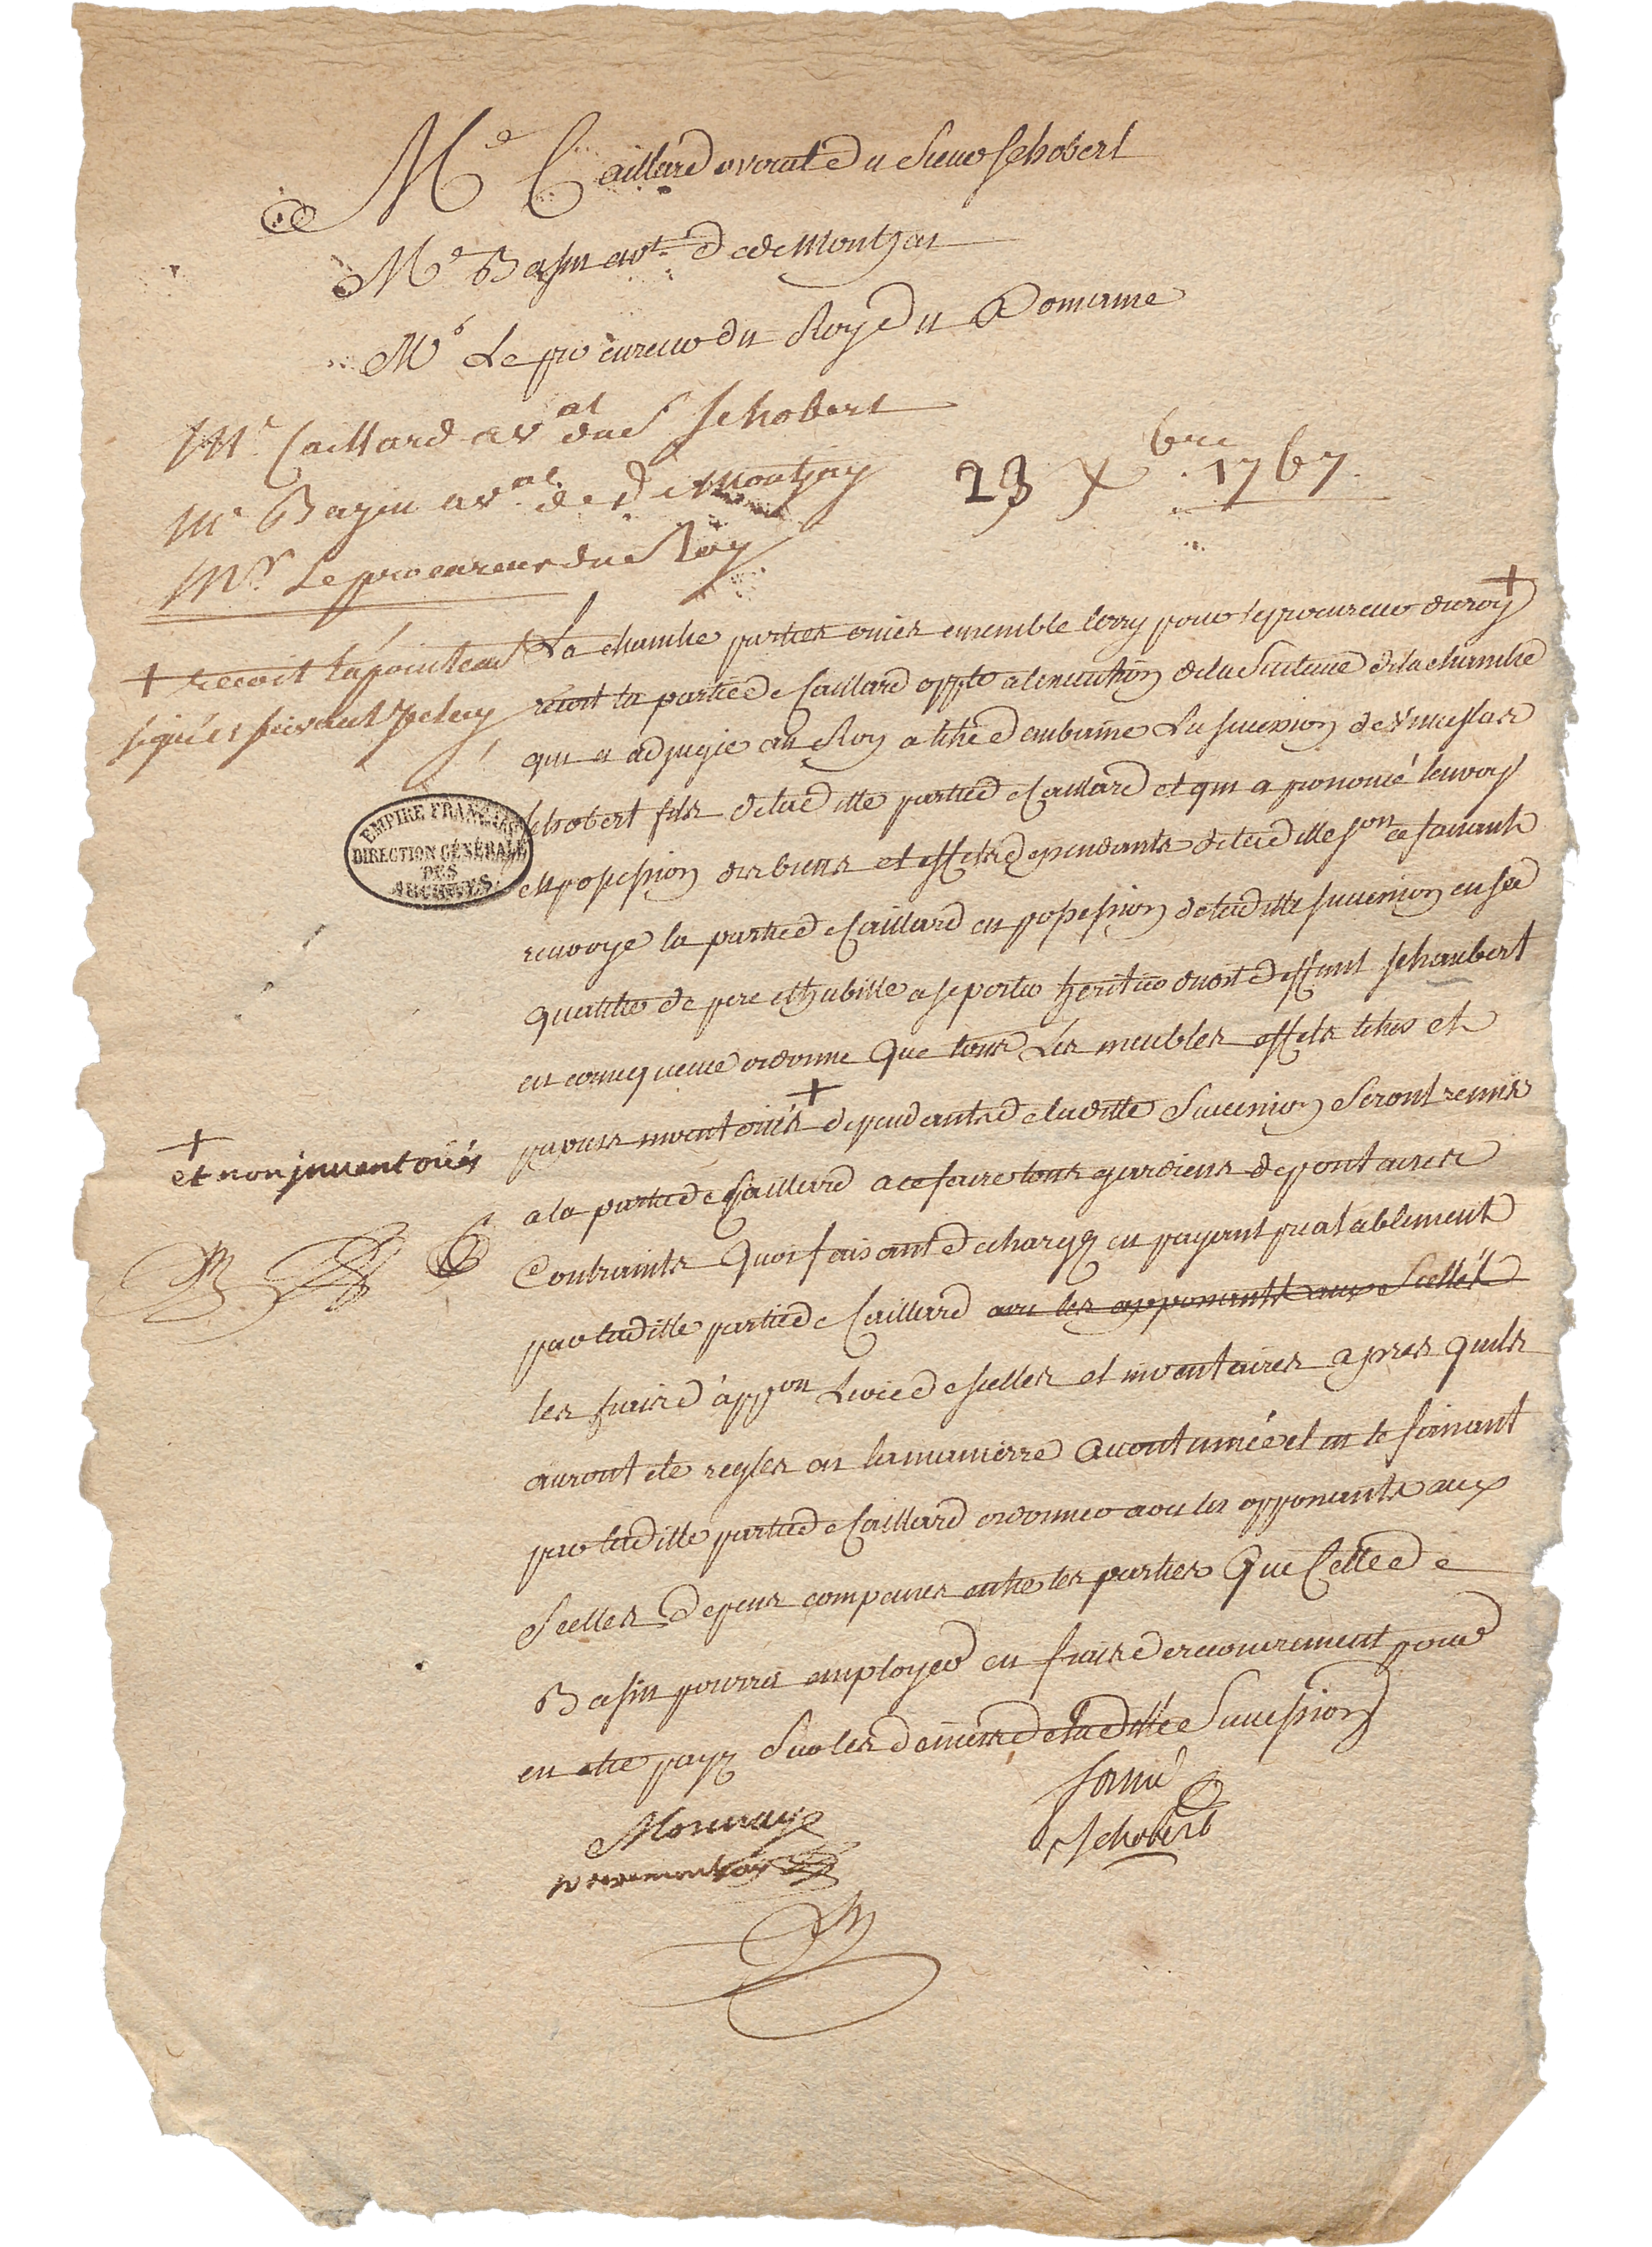 Me Caillard avocat du Sieur Schobert
Me Basin avt de de Montjay
Mr Le procureur du Roy du Domaine
Me Caillard avat du S Schobert
Me Bazin avat de d de Montjay
Mr Le procureur du Roy
23 Xbre 1767
La chambre parties ouies ensemble levry pour le procureur du roy +
+ recoit l'apointemt
signé et suivant iceluy
recoit la partie de Caillard oppte a lexecution de la Sentence de la chambre
qui a adjugé au Roy a titre daubaine La succession de
Schobert fils de laditte partie de Caillard et qui a prononcé lenvoy
en possession des biens et effets dependants de laditte son ce faisant
EMPIRE FRANÇAIS
DIRECTION GÉNÉRALE
DES
ARCHIVES
renvoye la partie de Caillard en possession de laditte succession en sad
qualité de pere et habille a se porter heritier dudit deffunt Schaubert
en consequence ordonne que tous Les meubles effets titres et
papiers inventoriés + dependants de laditte Succession Seront remis
+
et non inventoriés
a la partie de Caillard a ce faire tous gardiens depositaires
Contraints quoi faisant dechargez en payant prealablement
par laditte partie de Caillard avec les opponants aux Scellés
les frais d'appon Levée de scellés et inventaires apres quils
auront eté reglés en la maniere accoutumée et en le faisant
par laditte partie de Caillard ordonner avec les opponants aux
Scellés Depens compensés entre les parties que Celle de
Basin pourra employer en frais de recouvrement pour
en etre payé Sur les deniers de laditte Succession
Schobert